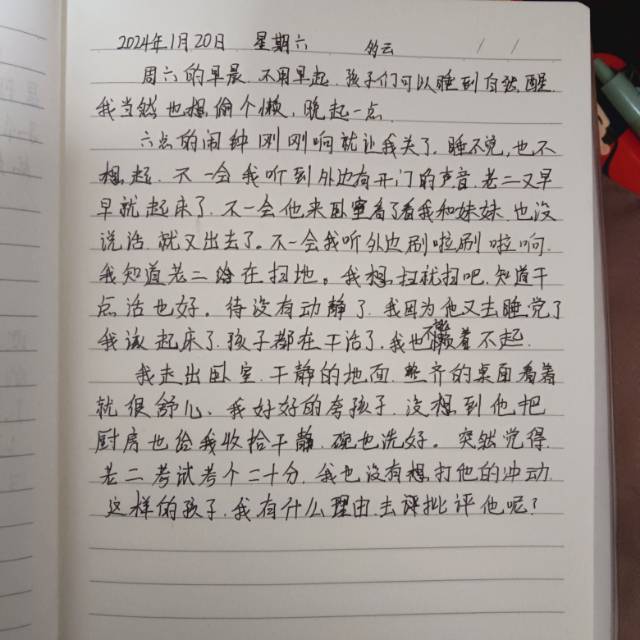 2024年1月20日 星期六 多云 / /
周六的早晨.不用早起.孩子们可以睡到自然醒.
我当然也想偷个懒.晚起一点.
六点的闹钟刚刚响就让我关了.睡不说,也不
想起.不一会我听到外边有开门的声音.老二又早
早就起床了.不一会他来卧室看了看我和妹妹.也没
说话.就又出去了。不一会我听外边刷啦刷啦响.
我知道老二给在扫地。我想扫就扫吧.知道干
点活也好。待没有动静了.我因为他又去睡觉了
我该起床了.孩子都在干活了.我也不能懒着不起.
我走出卧室.干静的地面.整齐的桌面看着
就很舒儿.我好好的夸孩子.没想到他把
厨房也给我收拾干静.碗也洗好。突然觉得
老二考试考个二十分.我也没有想打他的冲动.
这样的孩子.我有什么理由.去评批评他呢?